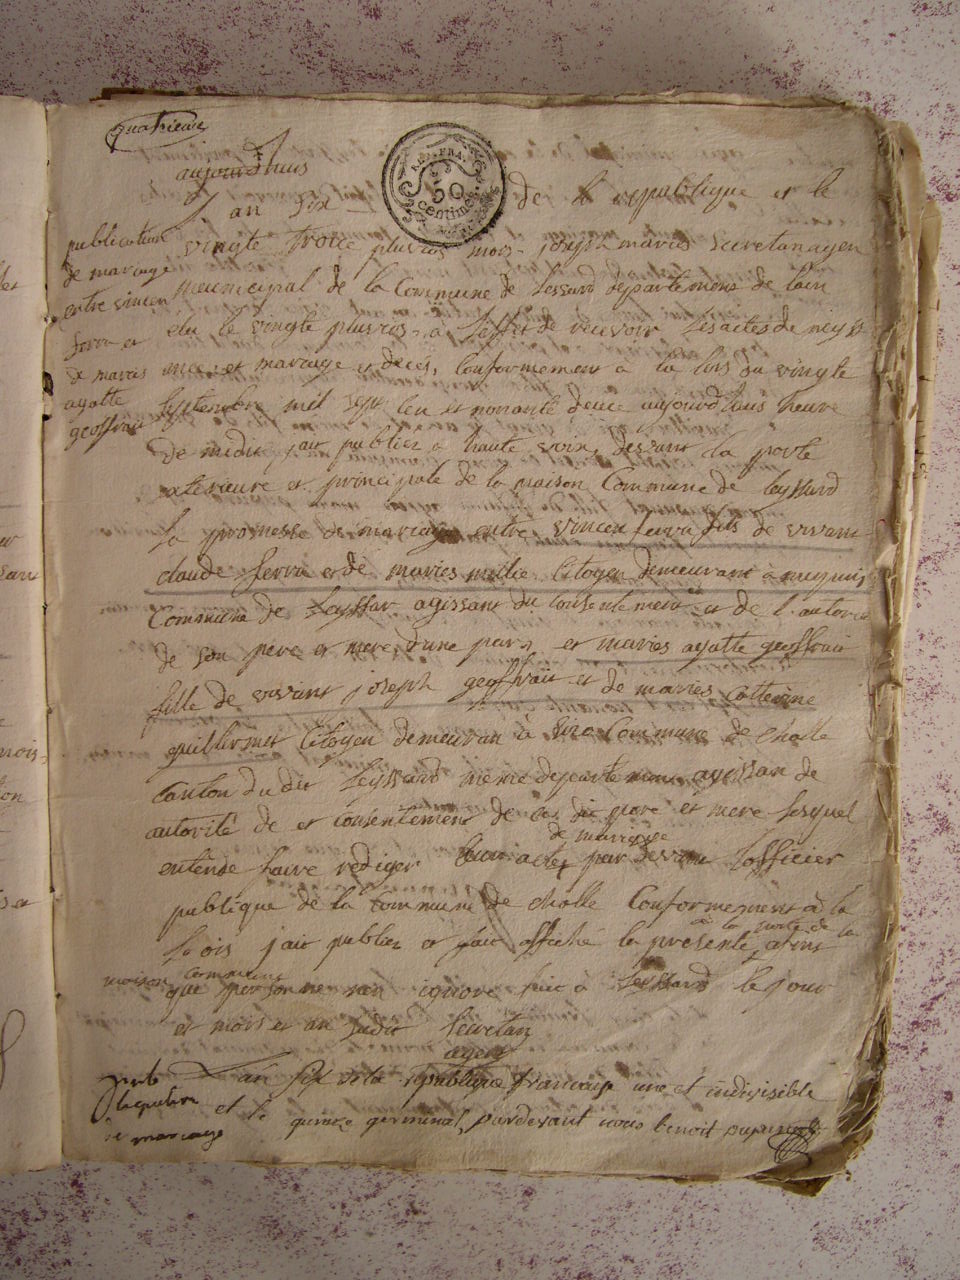 quatrieme
REP. FRA.
50
centimes
aujourdhuis
L an six de la republique et le
vingte troice pluvios mois joseph maries Secretan agen
municipal de la Commune de Lessard departement de lain
élu le vingte pluvios, a leffet de recevoir les actes de neyss
ances et mariage et decés, Conformement a la lois du vingte
Septembre mil sept cen et nonante deuce aujourdhuis heure
de midit jait publiez a haute voix, devant la porte
exterieure et principale de la maison Commune de leyssard
la promesse de mariage entre vincen ferra fils de vivant
claude ferra et de maries millie Citoyen demeurant à
Commune de Leyssar agissant du consentement et de l'autorite
de son pere et mere d'une part et maries agatte geoffrait
fille de vivant joseph geoffrait et de maries catterine
Citoyen demeuran à Commune de cholle
Canton du dit Leyssard meme departement agissan de
autorité de et consentement de ces dit pere et mere lesquel
entende faire rediger leur acte de mariage par devant lofficier
publique de la commune de cholle Conformement à la
Lois jait publiez et fait affiché la presente a la porte de la
maison commune afint
que personne nen ignore fait à Leyssard le jour
et mois et an sudit Secretan
agent
publication
de mariage
entre vincen
ferra et
de maries
agatte
geoffrait
L'an six de la republique francaise une et indivisible
et le quinze germinal, pardevant nous benoit
pub
de mariage